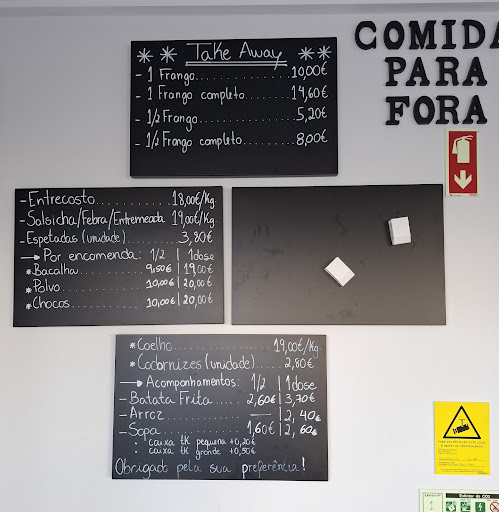 COMIDA
PARA
FORA
** Take Away **
- 1 Frango.............10,00€
- 1 Frango completo........14,60€
- 1/2 Frango..............5,20€
- 1/2 Frango completo........8,00€
- Entrecosto............18,00€/Kg.
- Salsicha/Febra/Entremeada 19,00€/Kg.
- Espetadas (unidade)........3,80€
→ Por encomenda: 1/2 | 1 dose
* Bacalhau.........9,50€ | 19,00€
* Polvo............10,00€ | 20,00€
* Chocos...........10,00€ | 20,00€
* Coelho.............19,00€/Kg.
* Codornizes (unidade).....2,80€
→ Acompanhamentos: 1/2 | 1 dose
- Batata Frita......2,60€ | 3,70€
- Arroz......... — | 2,40€
- Sopa.........1,60€ | 2,60€
• caixa tk pequena +0,20€
• caixa tk grande +0,50€
Obrigado pela sua preferência!
Extintor de CO2